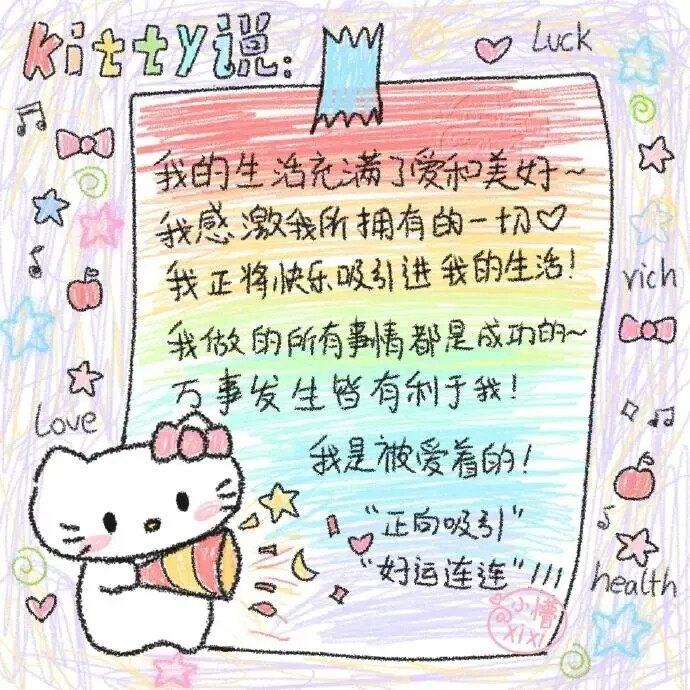 kitty说:
Luck
我的生活充满了爱和美好~
我感激我所拥有的一切♡
我正将快乐吸引进我的生活!
rich
我做的所有事情都是成功的~
万事发生皆有利于我!
Love
我是被爱着的!
“正向吸引”
“好运连连”!!!
health
@小懵
xixi